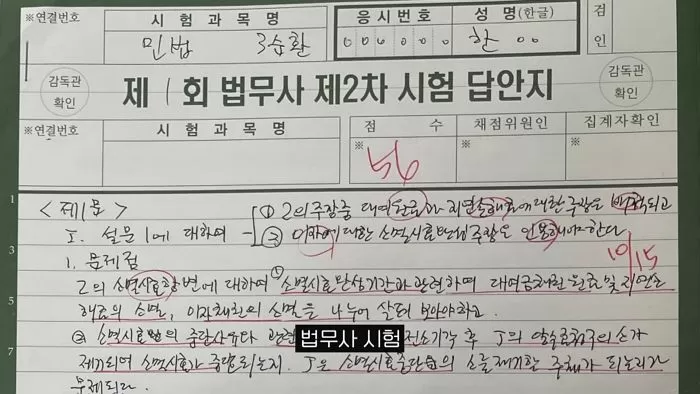 ※연결번호 시험과목명 응시번호 성명(한글) 검인
민법 3순환 006000 한 00
감독관 확인
제 1 회 법무사 제2차 시험 답안지
감독관 확인
※연결번호 시험과목명 점수 채점위원인 집계자확인
※ ※ ※
56
1
<제1문> ① 2의 주장중 대여원금과 지연손해금에 대한 주장은 배척되고
I. 설문 1에 대하여 ② 이자에 대한 소멸시효 주장은 인용해야한다
3
1. 문제점
10/15
2의 소멸시효항변에 대하여 ① 소멸시효 완성기간과 관련하여 대여금채권 원금 및 지연손
5
해금의 소멸, 이자채권의 소멸을 나누어 살펴 보아야하고
② 소멸시효의 중단사유와 후 J의 소가
법무사 시험
7
제기되어 소멸시효가 중단되는지. J는 소멸시효중단의 소를제기할 주체가 되는지가
문제된다.